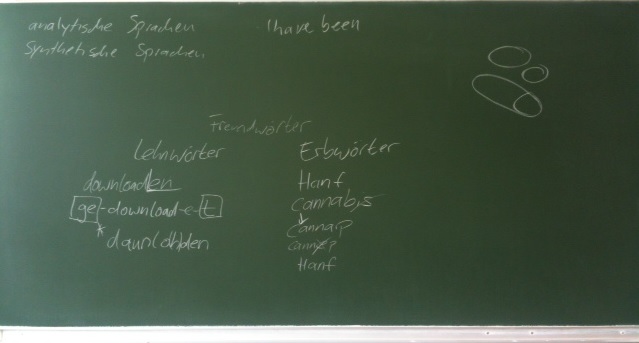 analytische Sprachen I have been
Synthetische Sprachen
Fremdwörter
Lehnwörter Erbwörter
downloaden Hanf
ge-download-e-t Cannabis
*daunlohden
Hanf